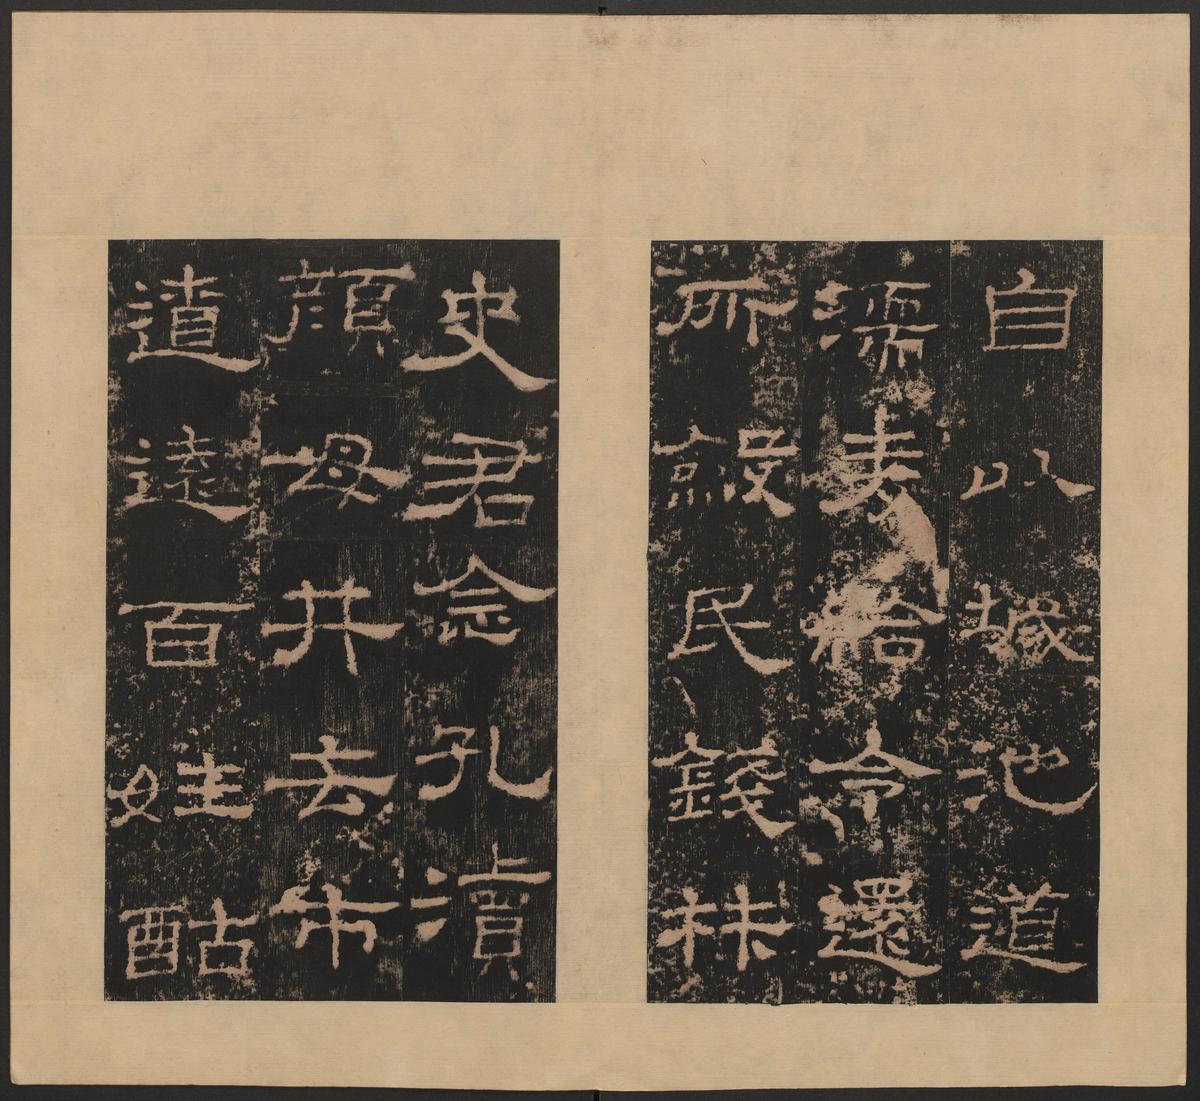 自以城池道
濡麥給令還
所斂民錢材
史君念孔瀆
顏母井去市
遼遠百姓酤